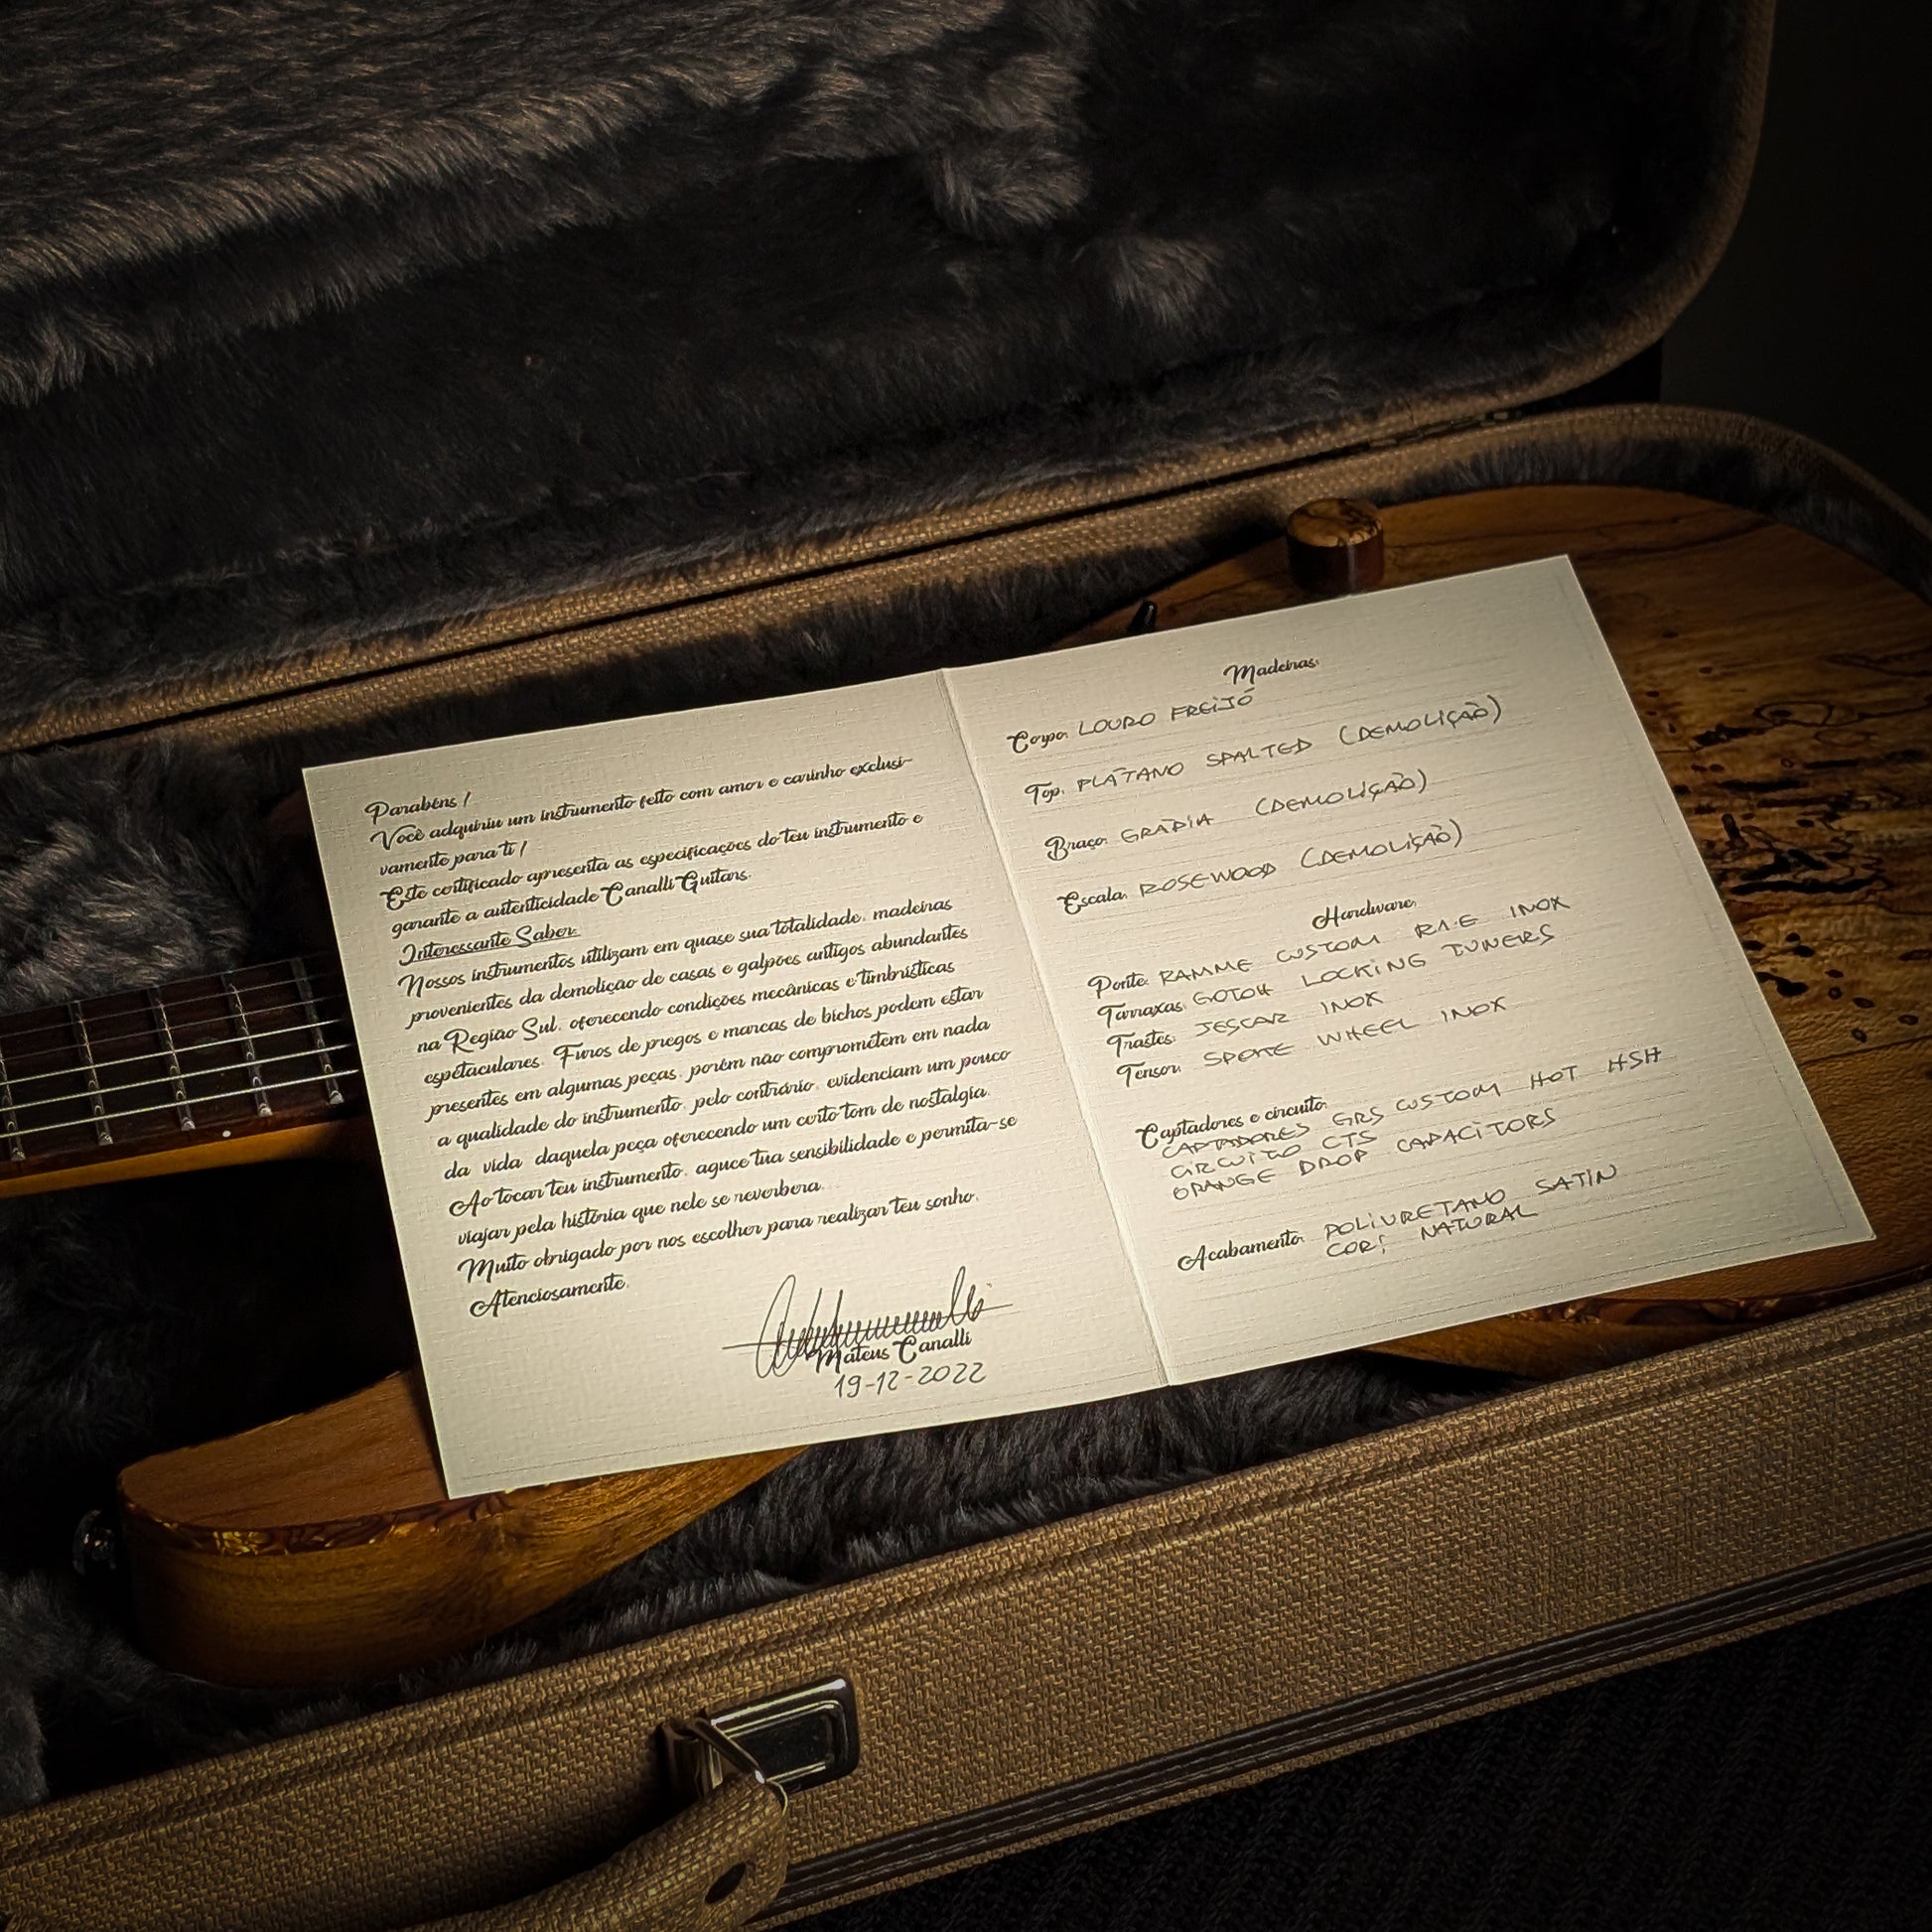 Parabéns!
Você adquiriu um instrumento feito com amor e carinho exclusi-
vamente para ti!
Este certificado apresenta as especificações do teu instrumento e
garante a autenticidade Canalli Guitars.
Interessante Saber:
Nossos instrumentos utilizam em quase sua totalidade, madeiras
provenientes da demolição de casas e galpões antigos abundantes
na Região Sul, oferecendo condições mecânicas e timbrísticas
espetaculares. Furos de pregos e marcas de bichos podem estar
presentes em algumas peças, porém não comprometem em nada
a qualidade do instrumento, pelo contrário, evidenciam um pouco
da vida daquela peça oferecendo um certo tom de nostalgia.
Ao tocar teu instrumento, aguce tua sensibilidade e permita-se
viajar pela história que nele se reverbera...
Muito obrigado por nos escolher para realizar teu sonho.
Atenciosamente,
Mateus Canalli
19-12-2022
Madeiras:
Corpo: LOURO FREIJÓ
Top: PLÁTANO SPALTED (DEMOLIÇÃO)
Braço: GRÁPIA (DEMOLIÇÃO)
Escala: ROSEWOOD (DEMOLIÇÃO)
Hardware:
Ponte: RAMME CUSTOM INOX
Tarraxas: GOTOH LOCKING TUNERS
Trastes: JESCAR INOX
Tensor: SPOKE WHEEL INOX
Captadores e circuito:
CAPTADORES GRS CUSTOM HOT HSH
CIRCUITO CTS
ORANGE DROP CAPACITORS
Acabamento: POLIURETANO SATIN
COR: NATURAL